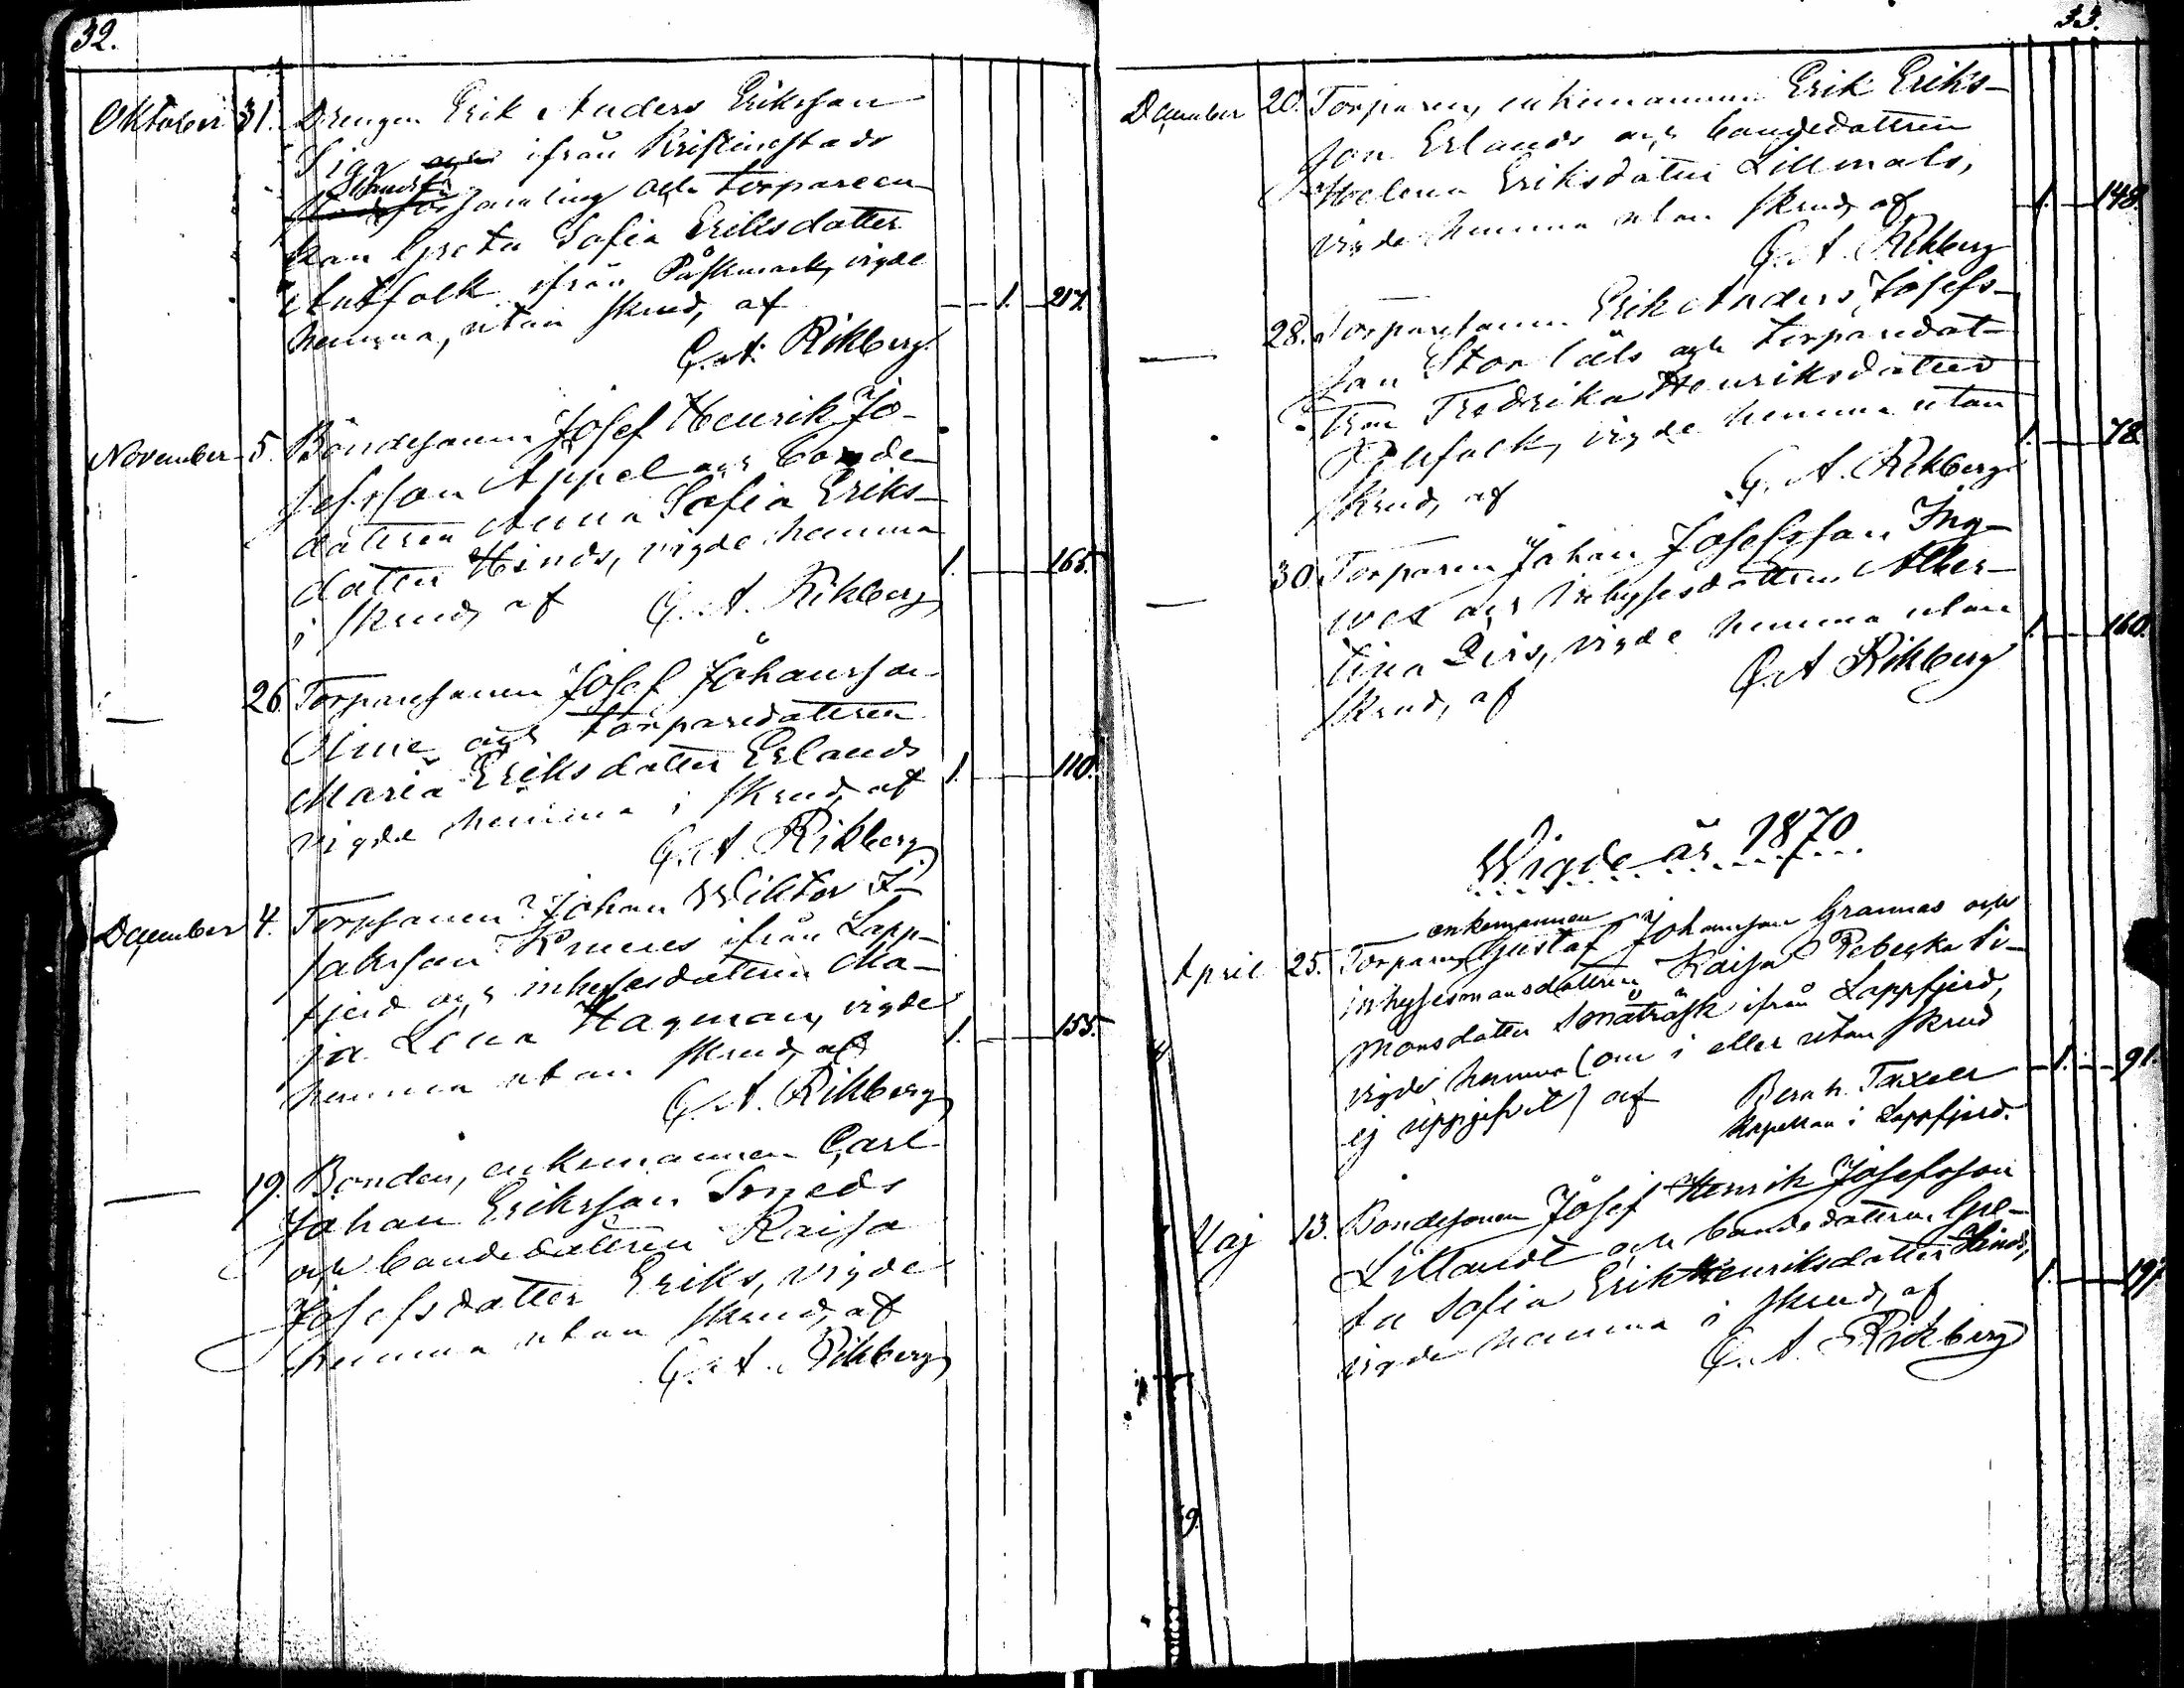 32.
Oktober 31. Drengen Erik Anders Eriksson
Sigg och ifrån Kristinestads
Landsförsamling och torpareen-
kan Greta Sofia Eriksdotter
Antfolk ifrån Påskmark, vigde
hemma, utan skrud, af 1. 217.
G. A. Rikberg.
November 5. Bondesonen Josef Henrik Jo-
sefsson Appel och bonde-
dottren Anna Sofia Eriks-
dotter Hinds, vigde hemma
i skrud, af G. A. Rikberg 1. 165.
— 26. Torparesonen Josef Johansson
och torparedottren
Maria Eriksdotter Erlands
vigde hemma i skrud, af 1. 110.
G. A. Rikberg
December 4. Torpsonen Johan Wiktor I-
saksson ifrån Lapp-
fjerd och inhysesdottren Ma-
ja Lena Hagman, vigde
hemma utan skrud, af 1. 155.
G. A. Rikberg
— 19. Bonden, enkemannen Carl
Johan Eriksson Smeds
och bondedottren Kaisa
Josefsdotter Eriks, vigde
hemma utan skrud, af
G. A. Rikberg
33.
December 20. Torparen, enkemannen Erik Eriks-
son Erlands och bondedottren
Helena Eriksdotter Lillmåls,
vigde hemma utan skrud, af 1. 148.
G. A. Rikberg
— 28. Torparesonen Erik Anders Josefs-
son Storlåls och torparedot-
tren Fredrika Henriksdotter
vigde hemma utan
skrud, af G. A. Rikberg 1. 78.
— 30. Torparen Johan Josefsson Ing-
ves och inhysesdottren Alber-
tina vigde hemma utan
skrud, af G. A. Rikberg 1. 160.
Wigde år 1870
enkemannen
April 25. Torparen Gustaf Johansson Grannas och
inhysesmansdottren Kaisa Rebecka Si-
monsdotter Småträsk ifrån Lappfjerd,
vigde hemma (om i eller utan skrud
ej uppgifvet) af Bernh. Taxell 1. 91.
Kapellan i Lappfjerd.
Maj 13. Bondesonen Josef Henrik Josefsson
Lillandt och bondedottren Gre-
ta Sofia Erik Henriksdotter Hinds,
vigde hemma i skrud, af 1. 197.
G. A. Rikberg
9.